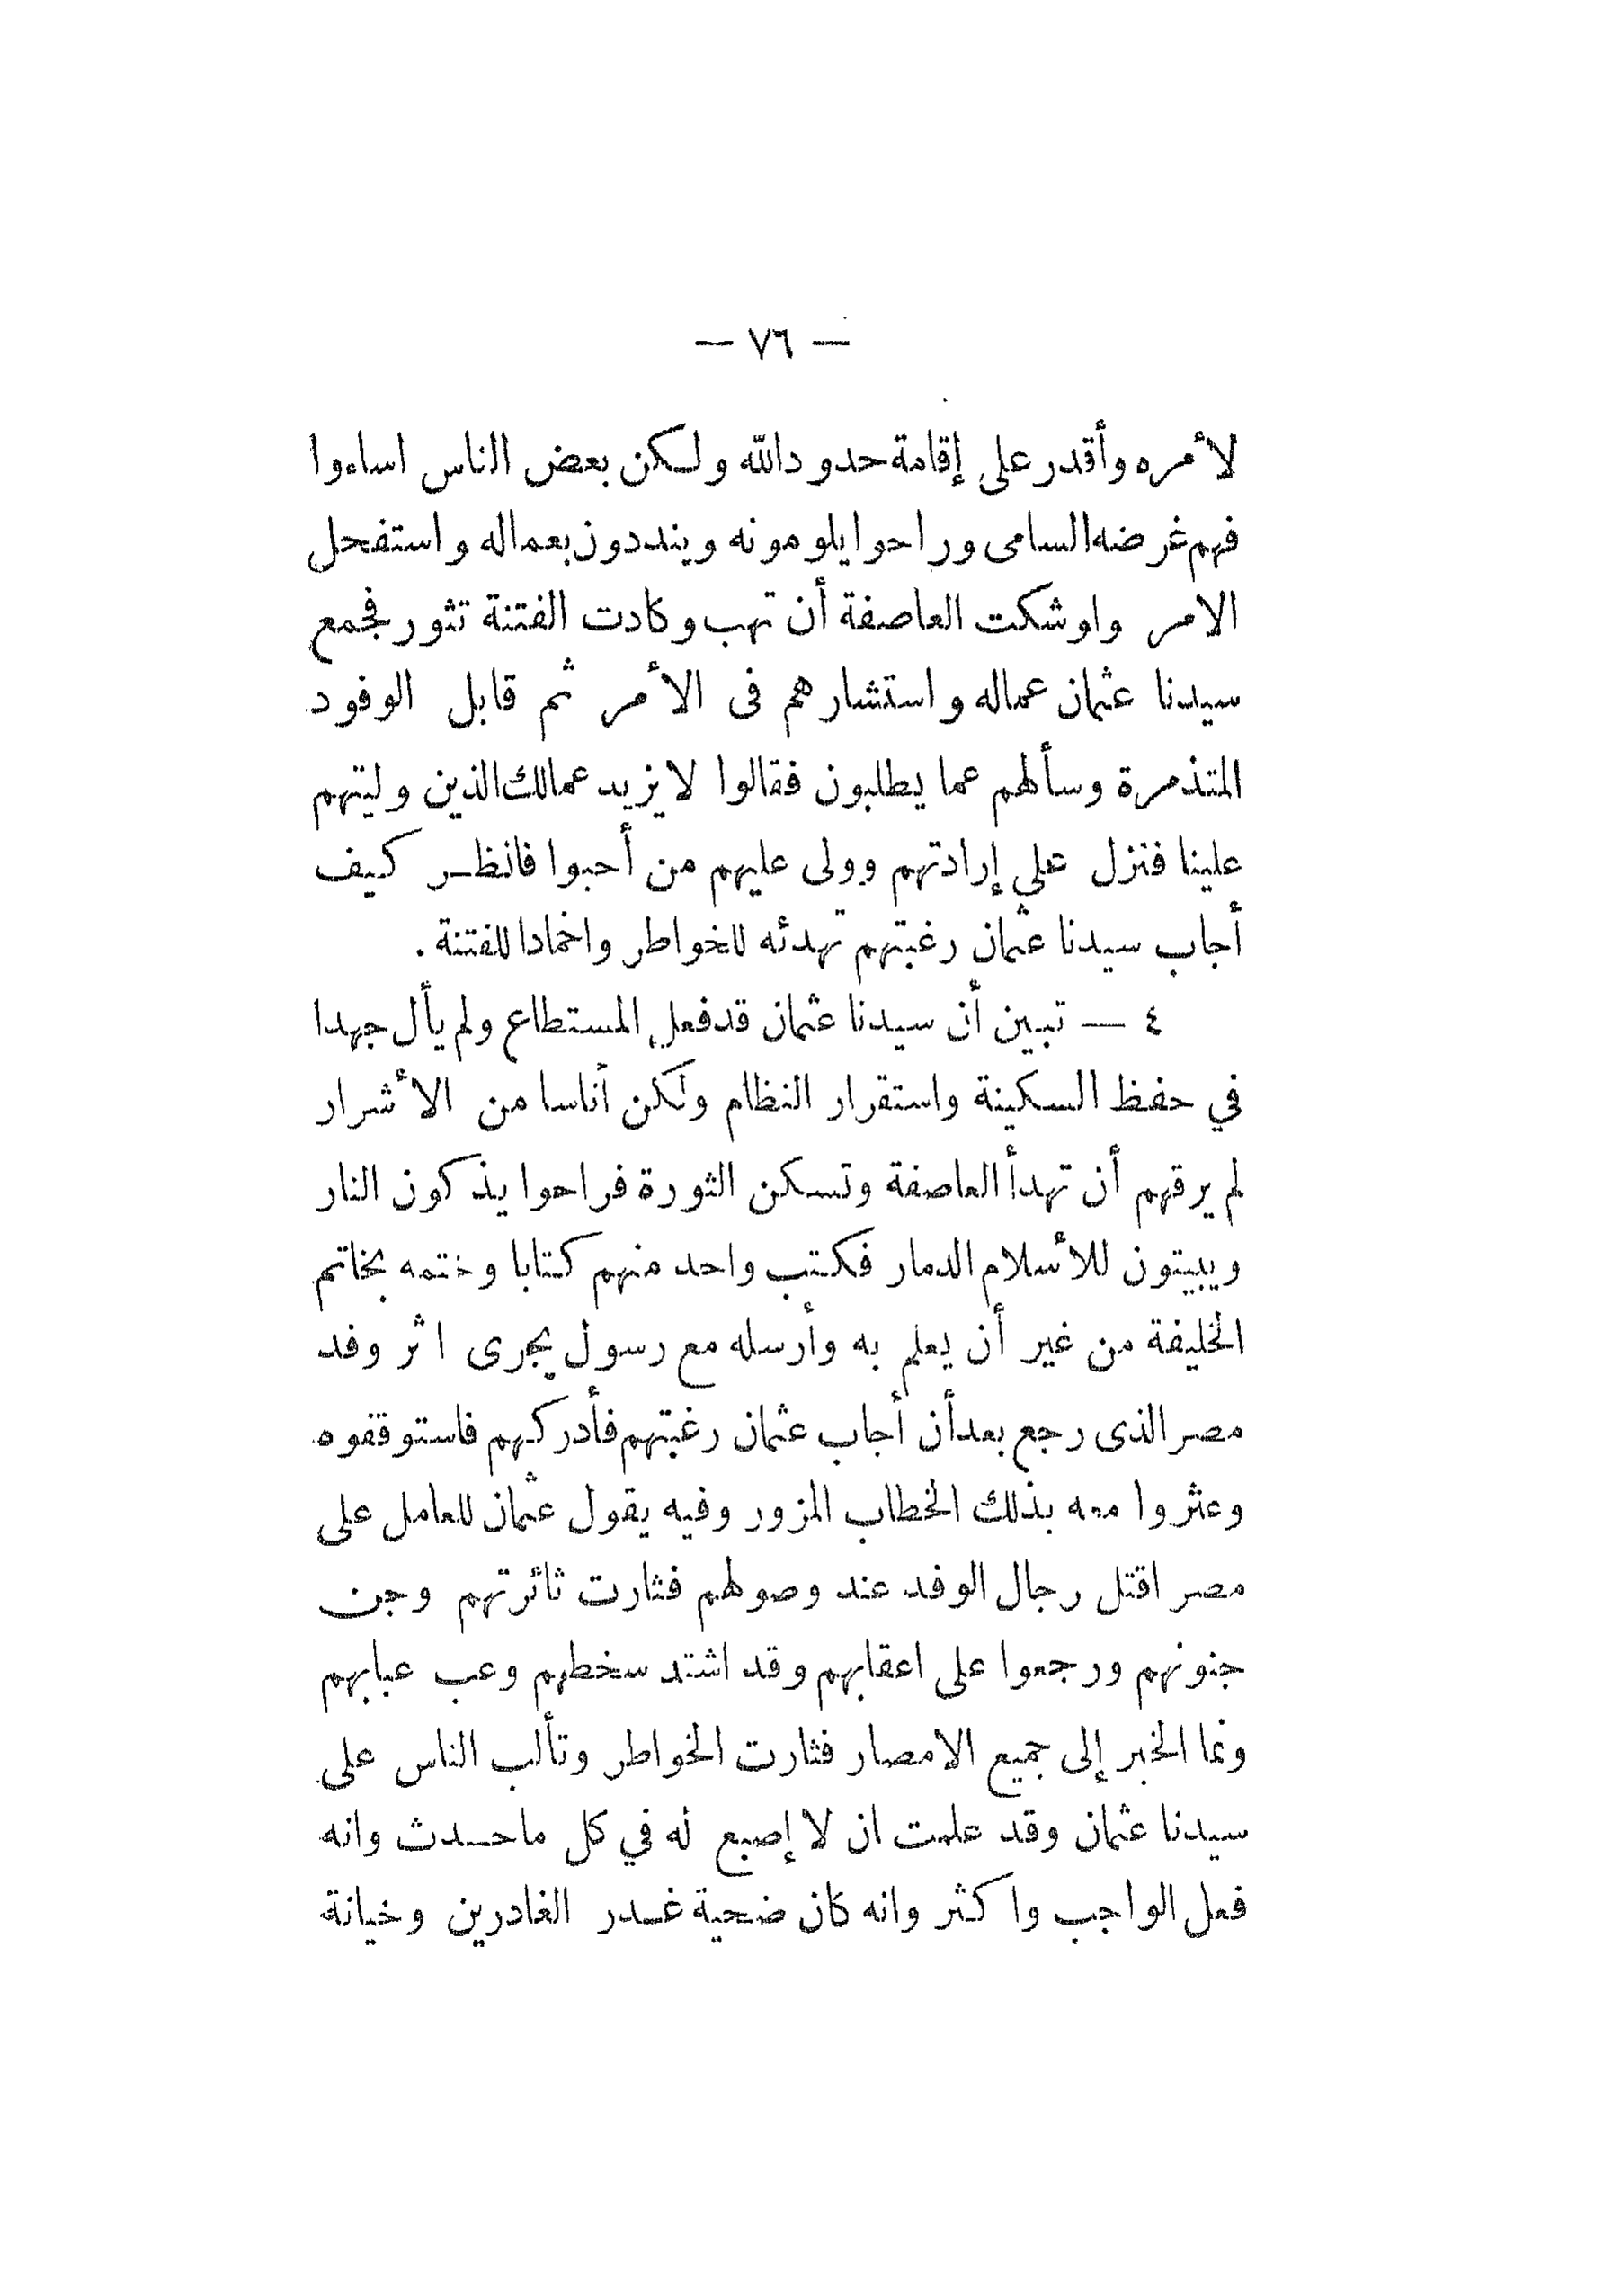 — ٧٦ —
لأمره وأقدر على إقامة حدود الله ولكن بعض الناس اساءوا
فهم غرضه السامى وراحوا يلومونه وينددون بعماله واستفحل
الامر واوشكت العاصفة أن تهب وكادت الفتنة تثور فجمع
سيدنا عثمان عماله واستشارهم فى الأمر ثم قابل الوفود
المتذمرة وسألهم عما يطلبون فقالوا لا نريد عمالك الذين وليتهم
علينا فنزل على إرادتهم وولى عليهم من أحبوا فانظر كيف
أجاب سيدنا عثمان رغبتهم تهدئه للخواطر واخمادا للفتنة .
٤ — تبين أن سيدنا عثمان قد فعل المستطاع ولم يأل جهدا
في حفظ السكينة واستقرار النظام ولكن أناسا من الأشرار
لم يرقهم أن تهدأ العاصفة وتسكن الثورة فراحوا يذكون النار
ويبيتون للأسلام الدمار فكتب واحد منهم كتابا وختمه بخاتم
الخليفة من غير أن يعلم به وأرسله مع رسول يجرى اثر وفد
مصر الذى رجع بعد أن أجاب عثمان رغبتهم فأدركهم فاستوقفوه
وعثروا معه بذلك الخطاب المزور وفيه يقول عثمان للعامل على
مصر اقتل رجال الوفد عند وصولهم فثارت ثائرتهم وجن
جنونهم ورجعوا على اعقابهم وقد اشتد سخطهم وعب عبابهم
ونما الخبر إلى جميع الامصار فثارت الخواطر وتألب الناس على
سيدنا عثمان وقد علمت ان لا إصبع له في كل ما حدث وانه
فعل الواجب واكثر وانه كان ضحية غدر الغادرين وخيانة